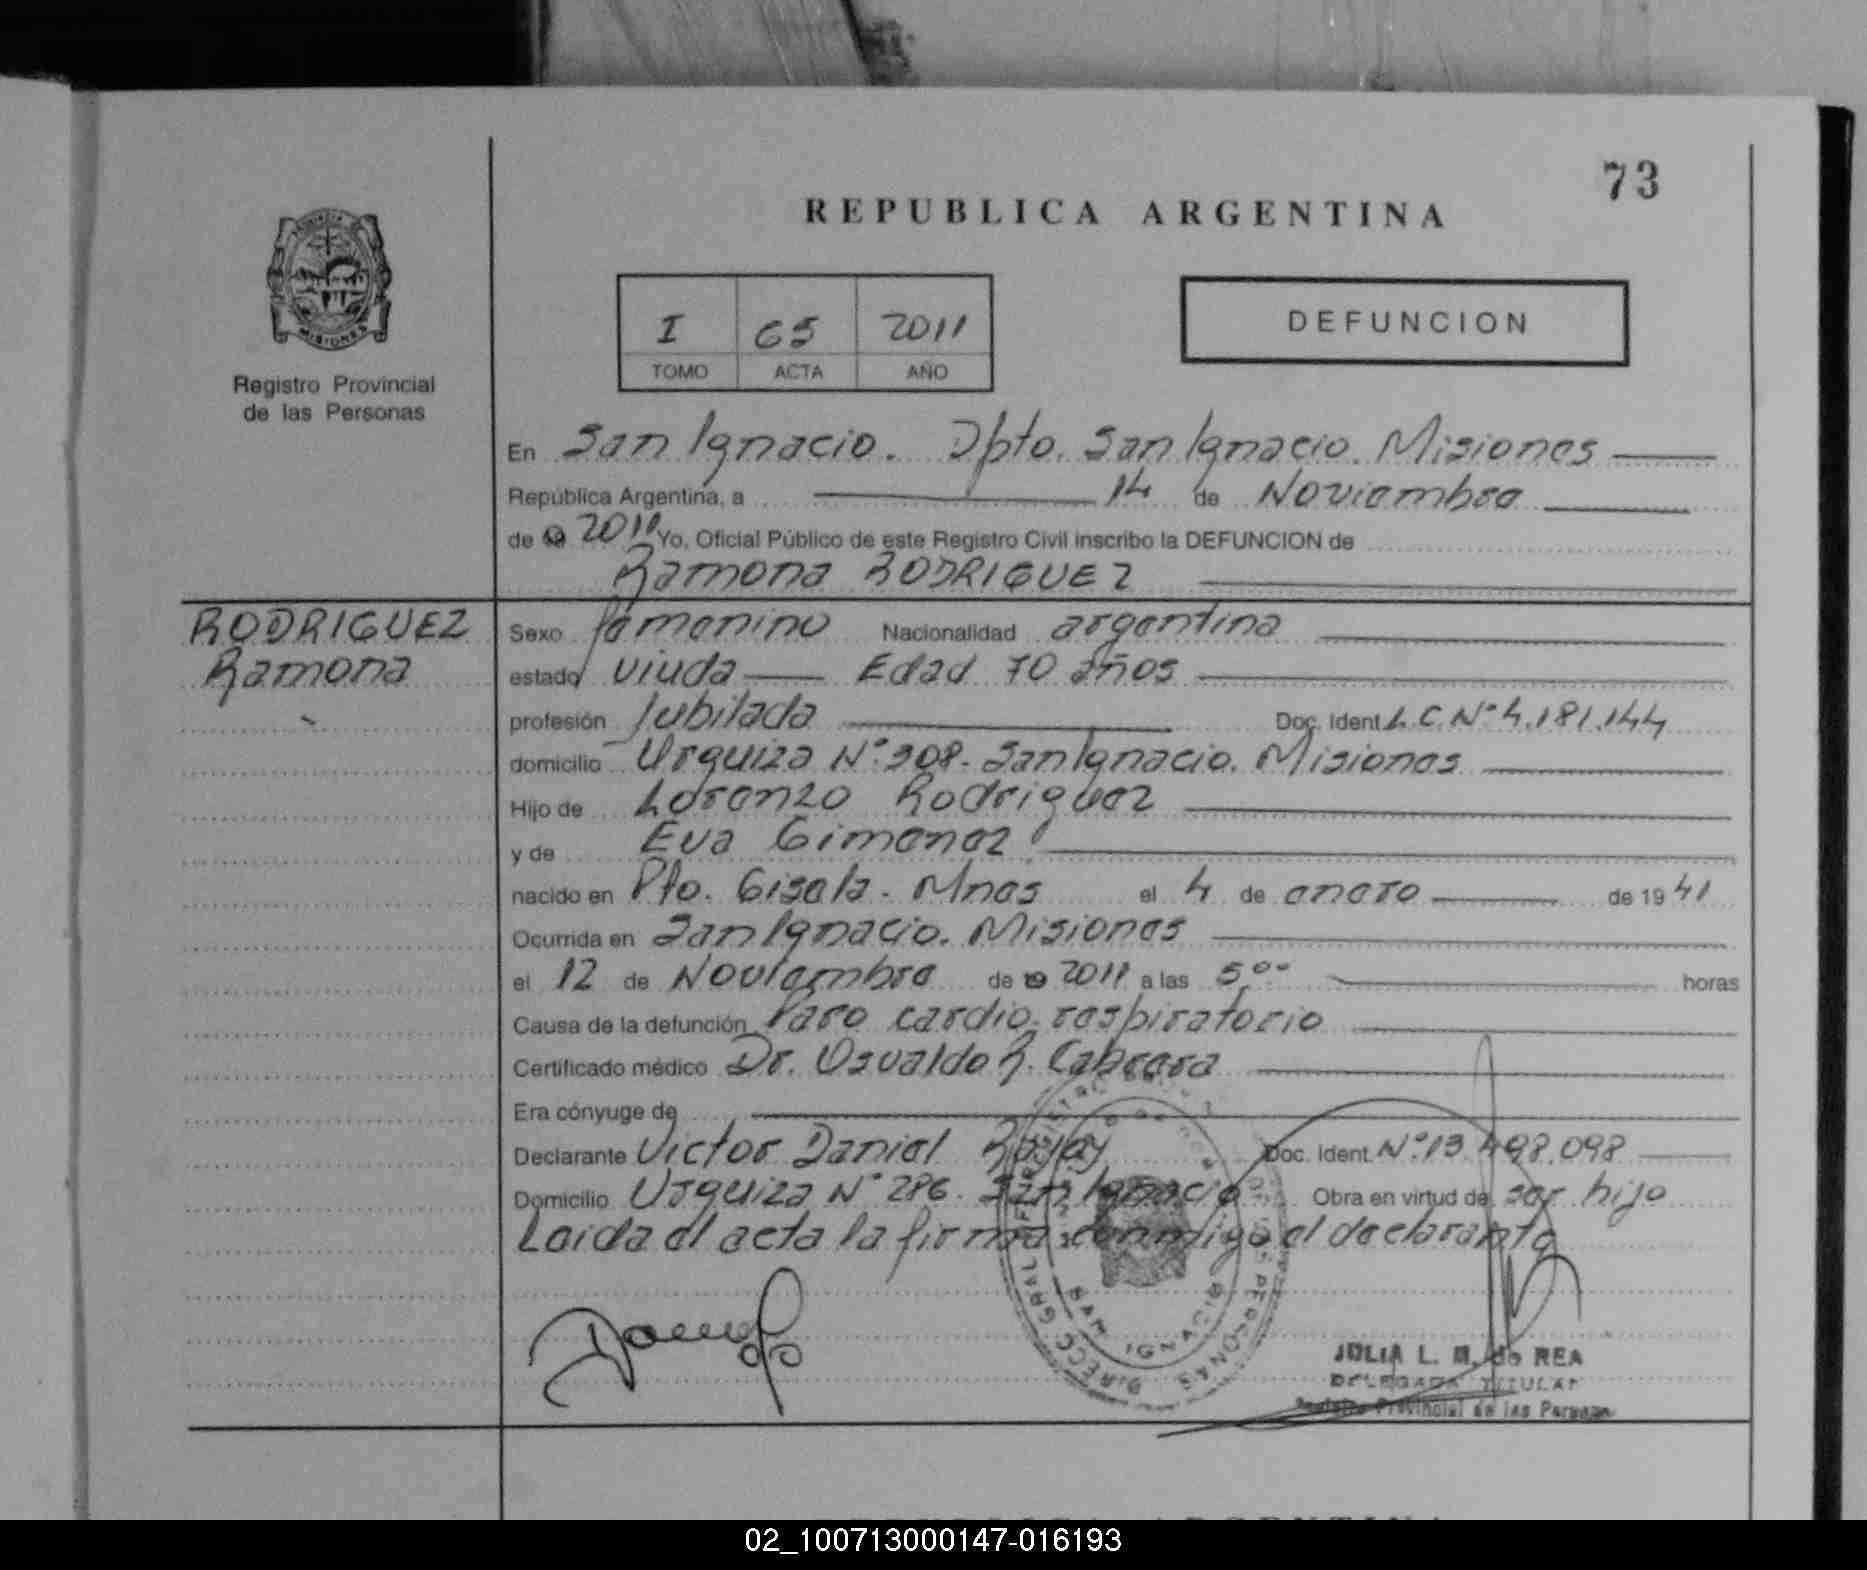 73
REPUBLICA ARGENTINA
PROVINCIA DE
MISIONES
Registro Provincial
de las Personas
I 65 2011
TOMO ACTA AÑO
DEFUNCION
En San Ignacio. Dpto. San Ignacio. Misiones
República Argentina, a 14 de Noviembre
de 19 2011 Yo, Oficial Público de este Registro Civil inscribo la DEFUNCION de
Ramona RODRIGUEZ
RODRIGUEZ
Ramona
Sexo femenino Nacionalidad argentina
estado viuda Edad 70 años
profesión Jubilada Doc. Ident. L.C.Nº 4.181.144
domicilio Urquiza Nº:308. San Ignacio. Misiones
Hijo de Lorenzo Rodriguez
y de Eva Gimenez
nacido en Pto. Gisela. Mnes el 4 de enero de 1941
Ocurrida en San Ignacio. Misiones
el 12 de Noviembre de 19 2011 a las 5,ºº horas
Causa de la defunción Paro cardio respiratorio
Certificado médico Dr. Osvaldo R. Cabrera
Era cónyuge de
Declarante Victor Daniel Doc. Ident. Nº:13.498.098
Domicilio Urquiza Nº 286. San Ignacio Obra en virtud de ser hijo
Leida el acta la firma conmigo el declarante
DIRECC GRAL DE PERSONAS
SAN IGNACIO
JULIA L. M. de REA
DELEGADA TITULAR
Registro Provincial de las Personas
REPUBLICA ARGENTINA
02_100713000147-016193